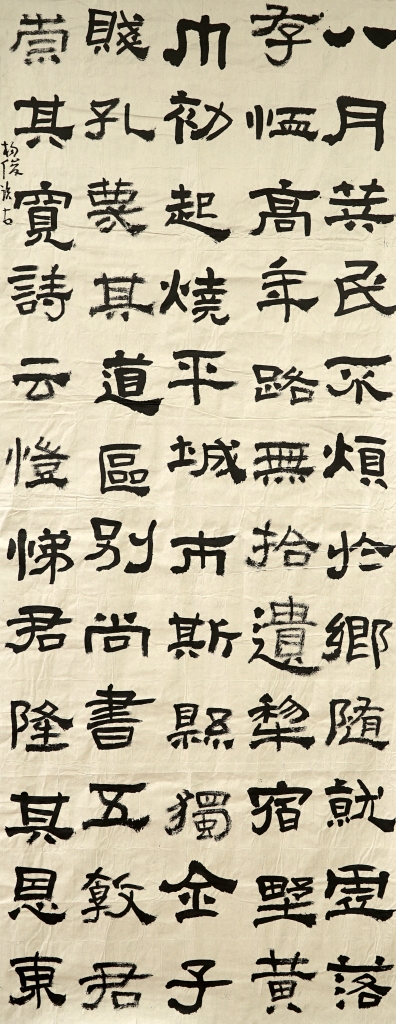 八月筭民不煩於鄉隨就虛落
存恤高年路無拾遺犁宿野黃
巾初起燒平城市斯縣獨全子
賤孔蔑其道區別尚書五教君
崇其寬詩云愷悌君隆其恩東